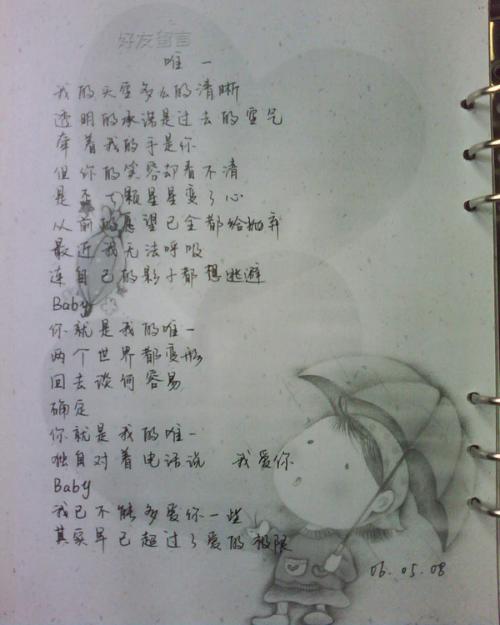 好友留言
唯一
我的天空多么的清晰
透明的承诺是过去的空气
牵着我的手是你
但你的笑容却看不清
是否一颗星星变了心
从前的愿望已全都给抛弃
最近我无法呼吸
连自己的影子都想逃避
Baby
你就是我的唯一
两个世界都变形
回去谈何容易
确定
你就是我的唯一
独自对着电话说 我爱你
Baby
我已不能多爱你一些
其实早已超过了爱的极限
06.05.08